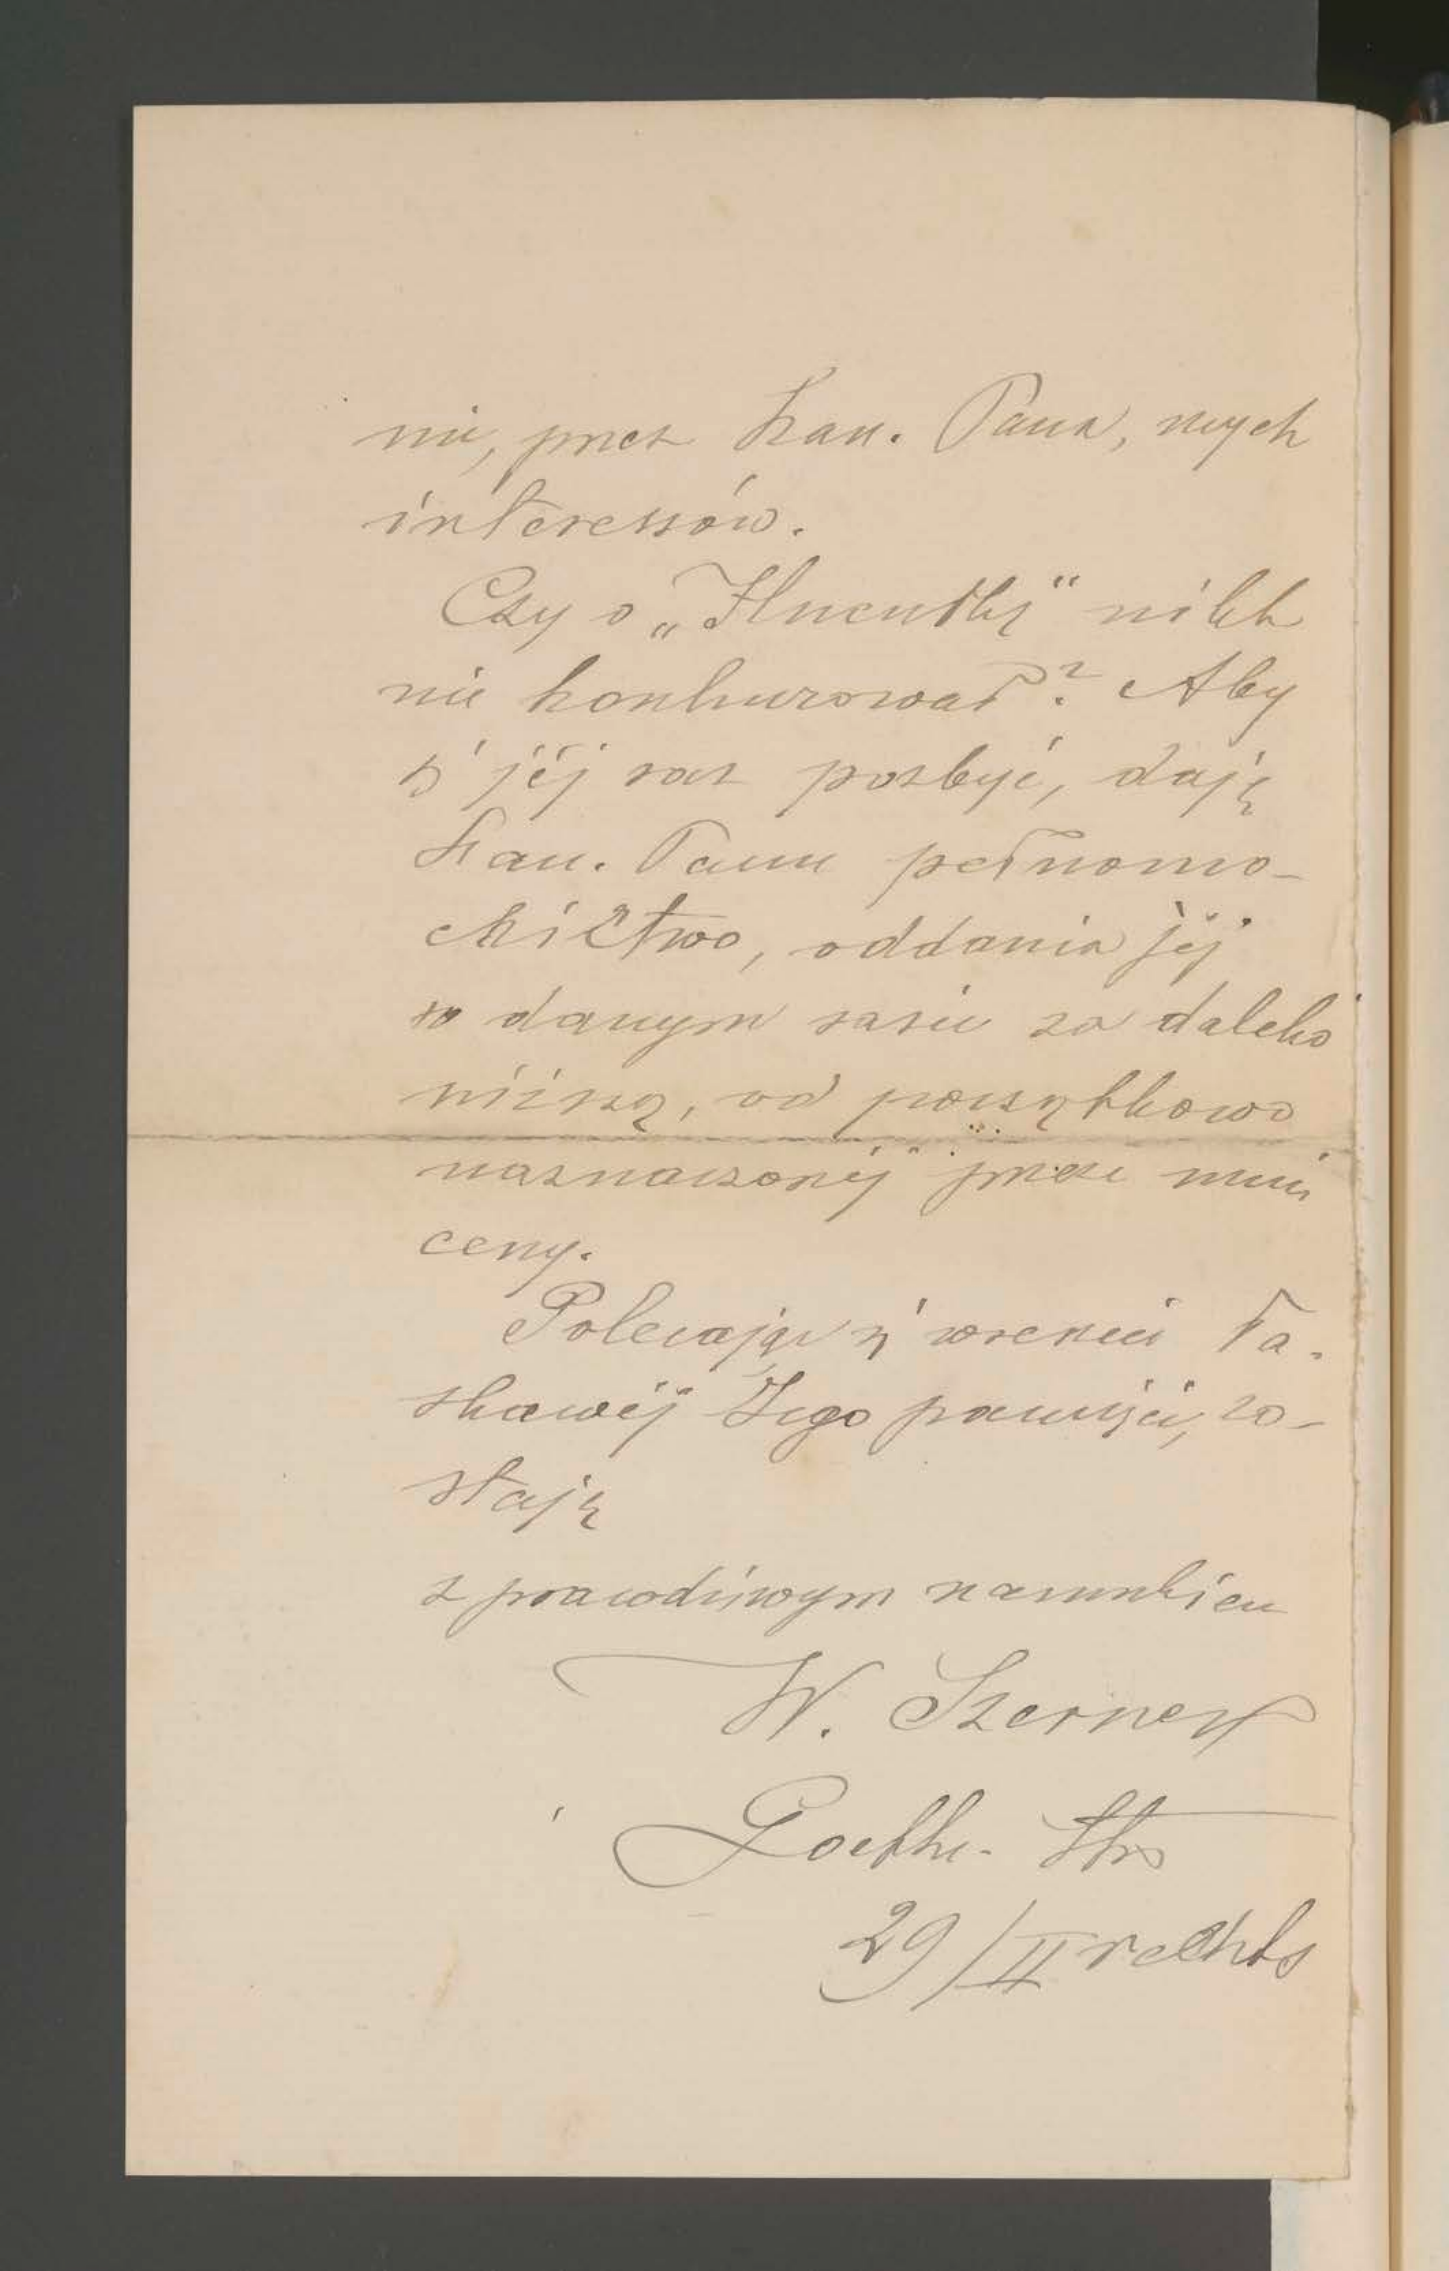 nie, przez Szan. Pana, mych
interessów.
Czy o „Hucułkę" nikt
nie konkurował? Aby
się jéj raz pozbyć, daję
Szan. Panu pełnomo-
cnictwo, oddania jéj
w danym razie za daleko
niższą, od początkowo
naznaczonéj przeze mnie
ceny.
Polecając się wreszcie ła-
skawéj Jego pamięci, zo-
staję
z prawdziwym szacunkiem
W. Szerner
Goethe-Str
29/II rechts